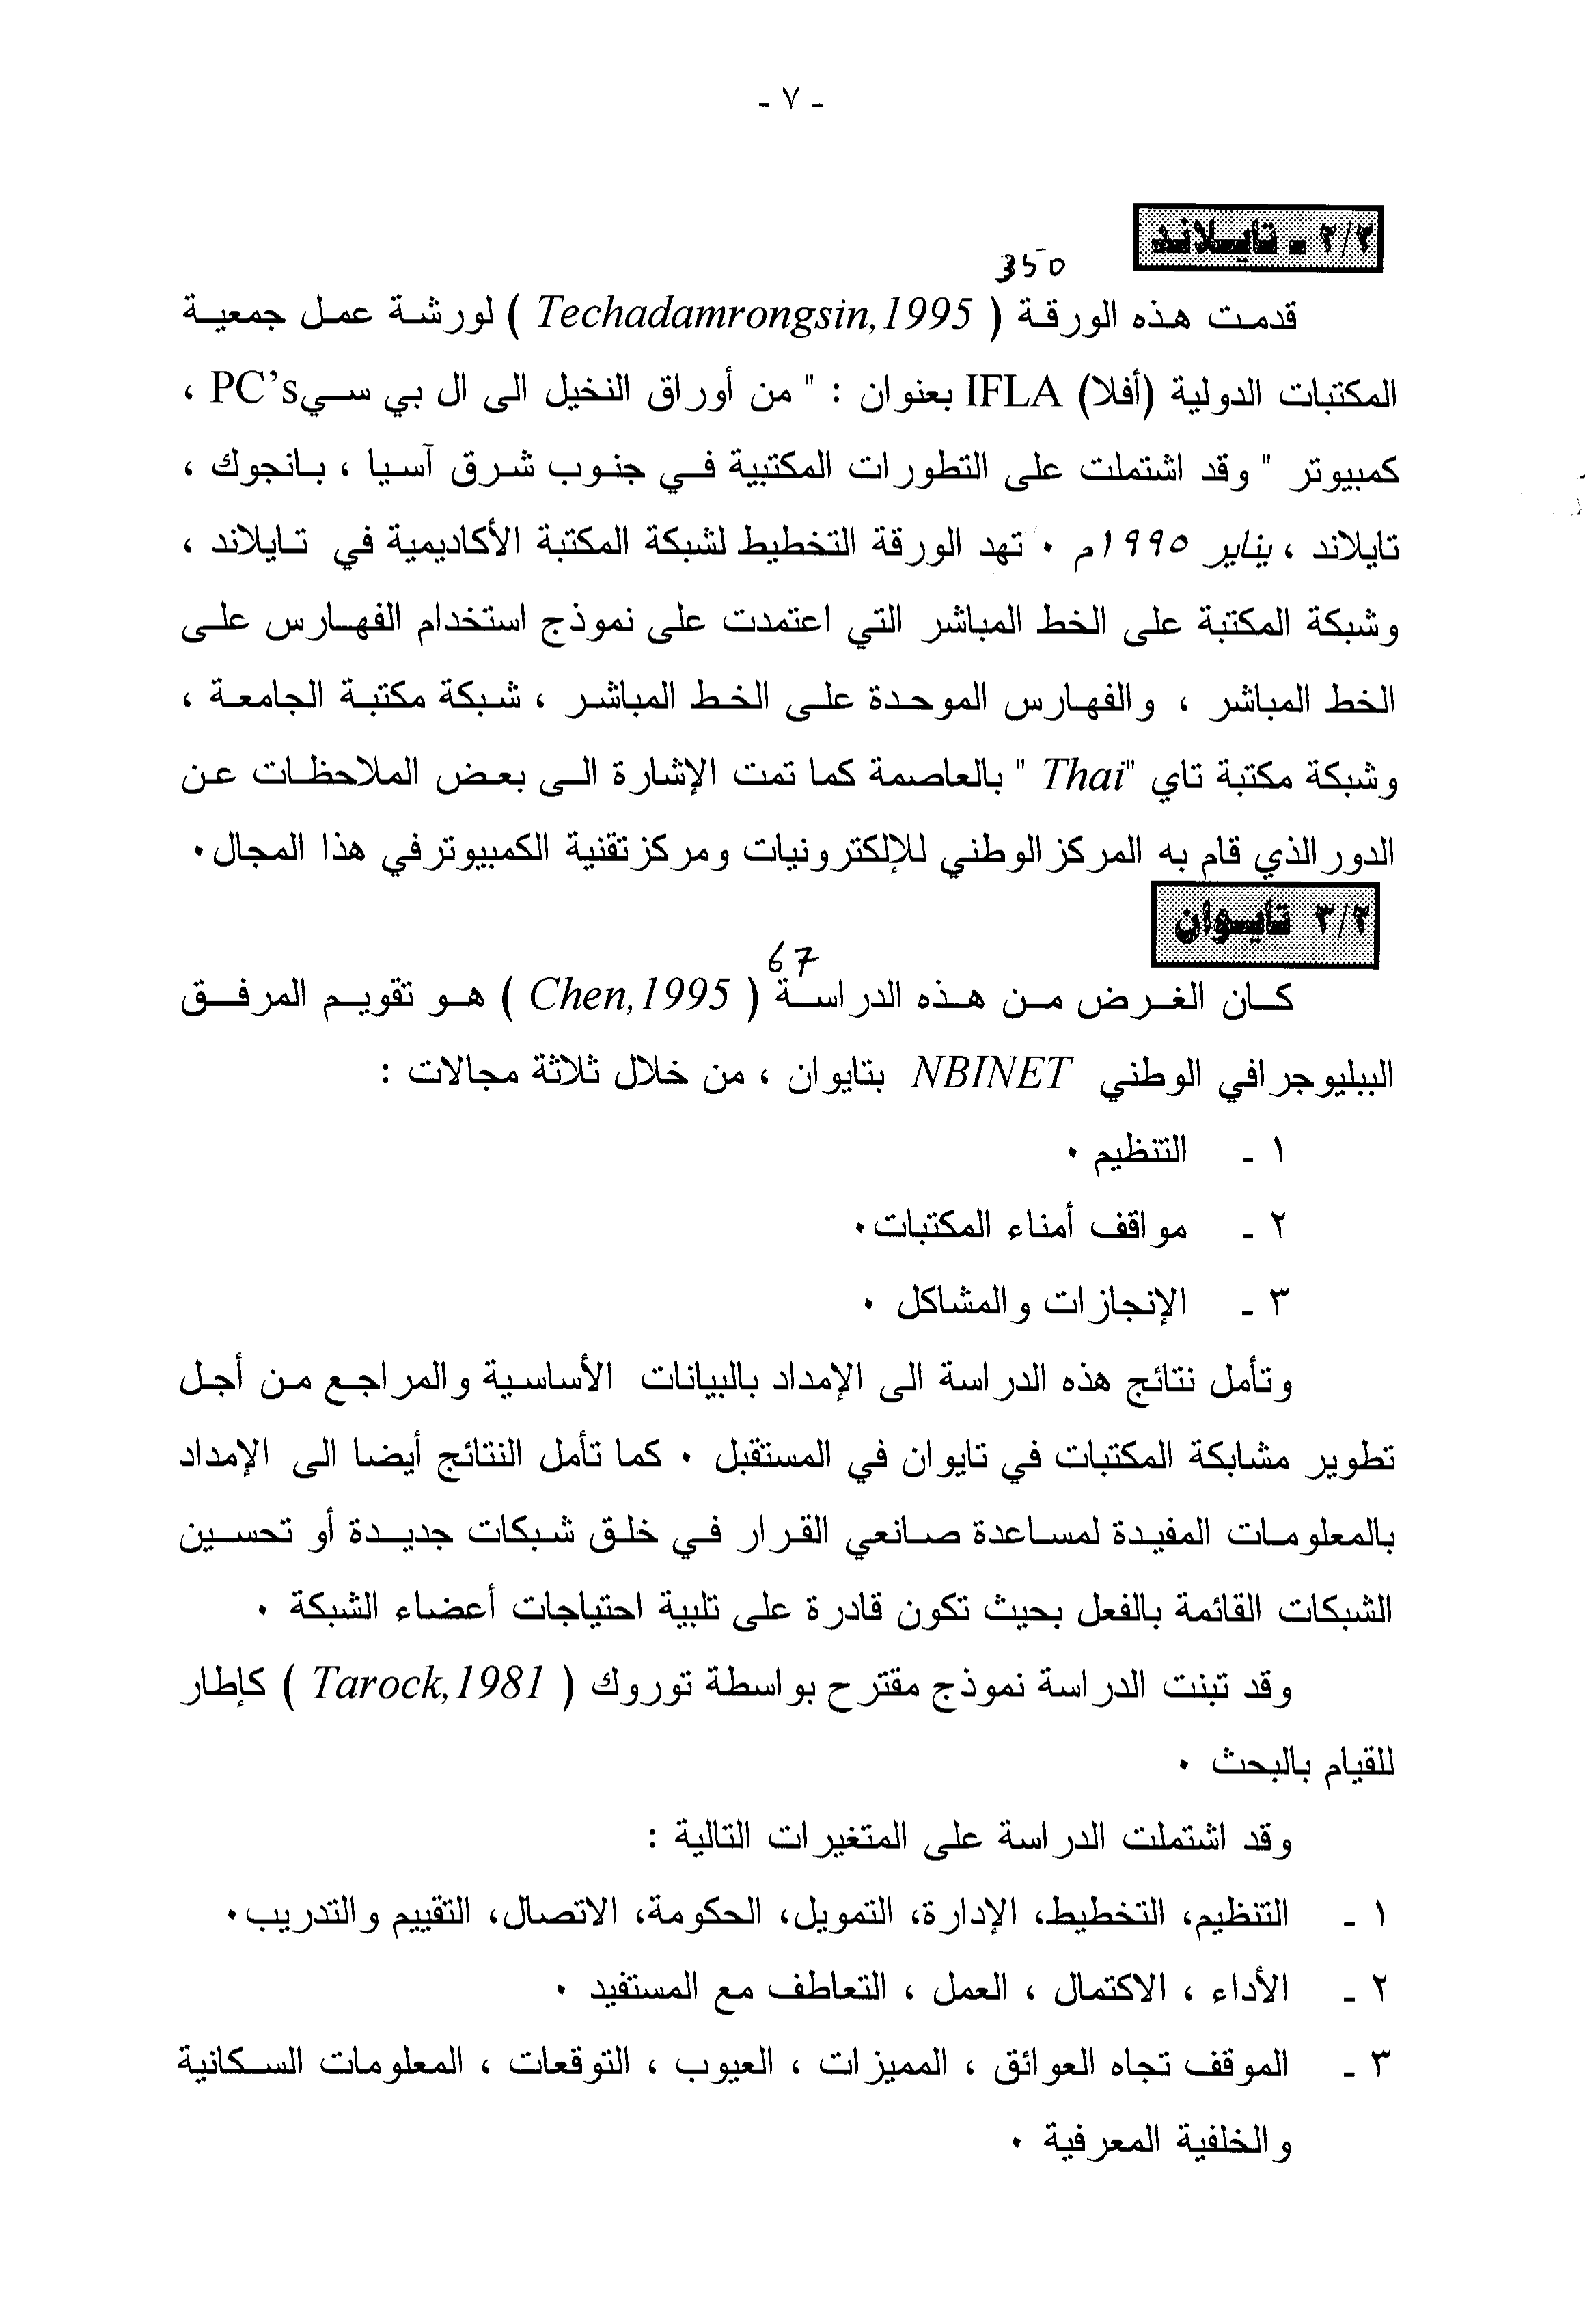 - ٧ -
٢/٢ - تايلاند
350
قدمت هذه الورقة ( Techadamrongsin,1995 ) لورشة عمل جمعية
المكتبات الدولية (أفلا) IFLA بعنوان : " من أوراق النخيل الى ال بي سي PC's ،
كمبيوتر " وقد اشتملت على التطورات المكتبية في جنوب شرق آسيا ، بانجوك ،
تايلاند ، يناير ١٩٩٥م ٠ تهد الورقة التخطيط لشبكة المكتبة الأكاديمية في تايلاند ،
وشبكة المكتبة على الخط المباشر التي اعتمدت على نموذج استخدام الفهارس على
الخط المباشر ، والفهارس الموحدة على الخط المباشر ، شبكة مكتبة الجامعة ،
وشبكة مكتبة تاي "Thai " بالعاصمة كما تمت الإشارة الى بعض الملاحظات عن
الدور الذي قام به المركز الوطني للإلكترونيات ومركز تقنية الكمبيوتر في هذا المجال٠
٣/٢ تايوان
67
كان الغرض من هذه الدراسة ( Chen,1995 ) هو تقويم المرفق
الببليوجرافي الوطني NBINET بتايوان ، من خلال ثلاثة مجالات :
١ - التنظيم ٠
٢ - مواقف أمناء المكتبات٠
٣ - الإنجازات والمشاكل ٠
وتأمل نتائج هذه الدراسة الى الإمداد بالبيانات الأساسية والمراجع من أجل
تطوير مشابكة المكتبات في تايوان في المستقبل ٠ كما تأمل النتائج أيضا الى الإمداد
بالمعلومات المفيدة لمساعدة صانعي القرار في خلق شبكات جديدة أو تحسين
الشبكات القائمة بالفعل بحيث تكون قادرة على تلبية احتياجات أعضاء الشبكة ٠
وقد تبنت الدراسة نموذج مقترح بواسطة توروك ( Tarock,1981 ) كإطار
للقيام بالبحث ٠
وقد اشتملت الدراسة على المتغيرات التالية :
١ - التنظيم، التخطيط، الإدارة، التمويل، الحكومة، الاتصال، التقييم والتدريب٠
٢ - الأداء ، الاكتمال ، العمل ، التعاطف مع المستفيد ٠
٣ - الموقف تجاه العوائق ، المميزات ، العيوب ، التوقعات ، المعلومات السكانية
والخلفية المعرفية ٠